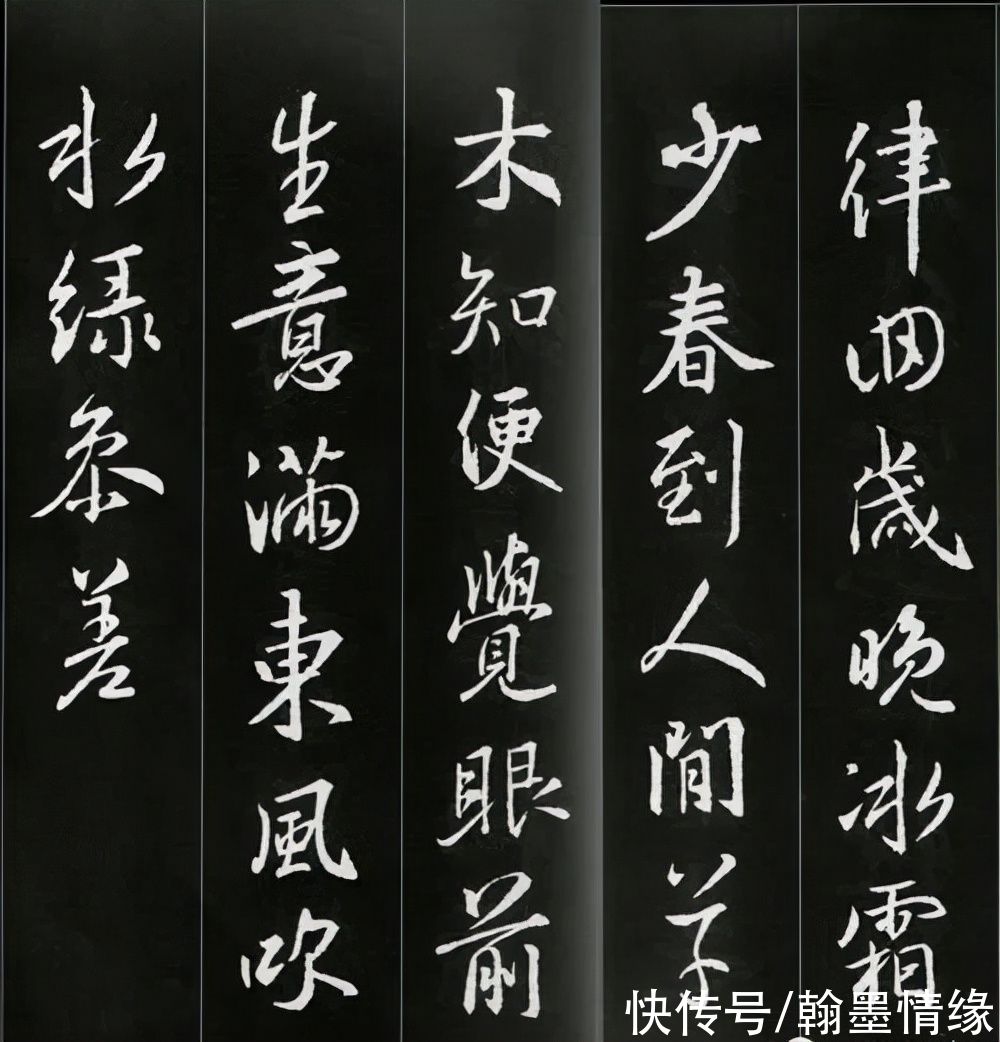 律回歲晚冰霜
少春到人間草
木知便覺眼前
生意滿東風吹
水綠參差
快传号/翰墨情缘